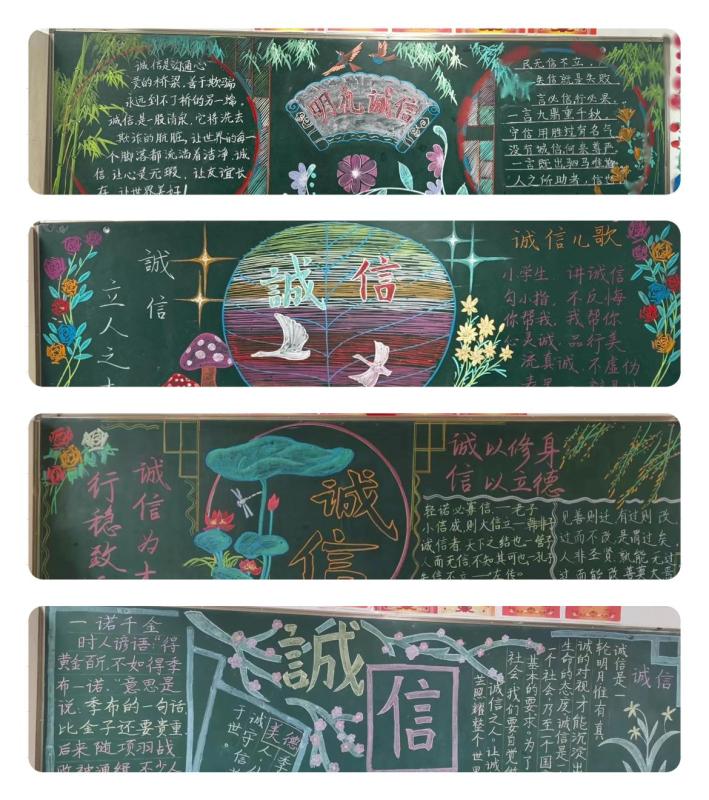 诚信是沟通心
灵的桥梁,善于欺骗
永远到不了桥的另一端。
诚信是一股清泉,它将洗去
欺诈的肮脏,让世界的每一
个角落都流淌着洁净。诚
信,让心灵无瑕,让友谊长
存,让世界美好!
明礼诚信
民无信不立,
失信就是失败
言必信行必果,
一言九鼎重千秋
守信用胜过有名气
没有诚信,何来尊严
一言既出驷马难追
人之所助者,信也
誠信
立人之
誠信
诚信儿歌
小学生 讲诚信
勾小指,不反悔
你帮我,我帮你
心灵诚,品行美
流真诚,不虚伪
诚信为
行稳致
诚信
诚以修身
信以立德
轻诺必寡信.一老子
小信成,则大信立一韩非子
诚信者 天下之结也一管子
人而无信,不知其可也一孔子
失信不立一左传。
见善则迁,有过则改,
过而不改,是谓过矣,
人非圣贤,孰能无过
过而能改,善莫大焉
一诺千金
时人谚语“得
黄金百斤,不如得季
布一诺。”意思是
说:季布的一句话,
比金子还要贵重,
后来随项羽战
败被通缉,不少人
誠
信
美德
诚守信
于世。
诚信是一
轮明月,惟有真
诚的对视,才能沉淀出
生命的态度,诚信是一
一个社会乃至一个国
基本的要求。为了
社会,我们要自觉做
诚信之人,让诚
芒照耀整个世界
诚信